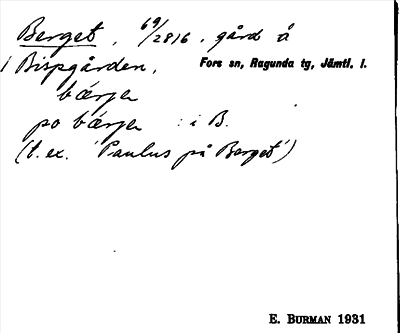 Berget, 69/2816, gård å
Bispgården, Fors sn, Ragunda tg, Jämtl. l.
bærjen
po bærjen : i B.
(t. ex. 'Paulus på Berget')
E. BURMAN 1931